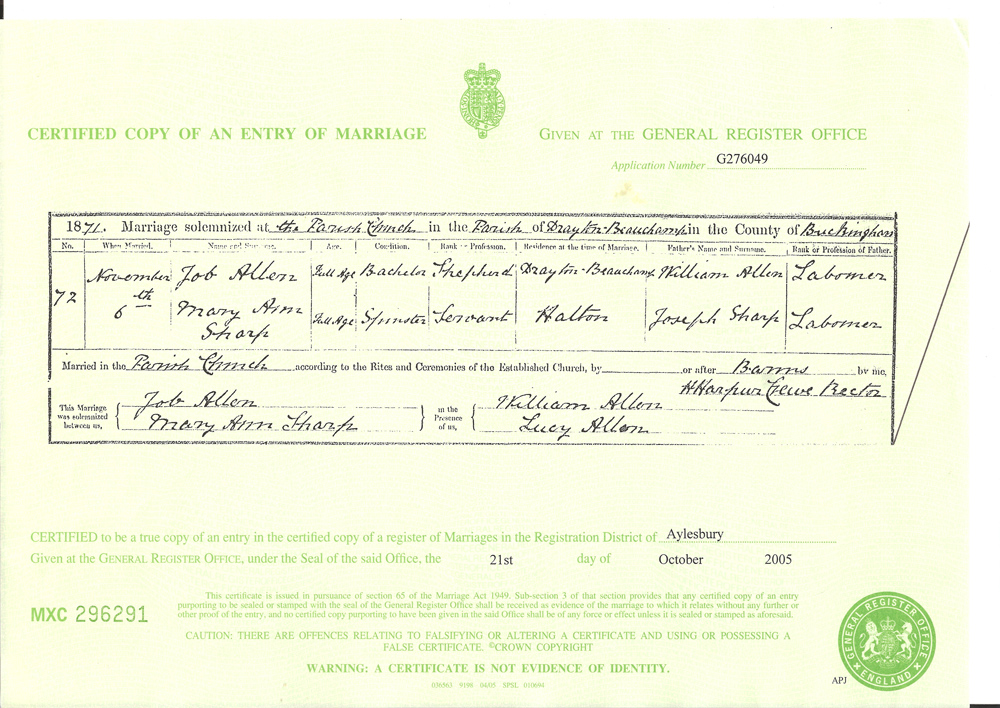 CERTIFIED COPY OF AN ENTRY OF MARRIAGE
GIVEN AT THE GENERAL REGISTER OFFICE
Application Number G276049
1871. Marriage solemnized at the Parish Church in the Parish of Drayton-Beauchamp in the County of Buckingham
No. When Married. Name and Surname. Age. Condition. Rank or Profession. Residence at the time of Marriage. Father's Name and Surname. Rank or Profession of Father.
72 November 6th Job Allen Full Age Bachelor Shepherd Drayton-Beauchamp William Allen Labourer
Mary Ann Sharp Full Age Spinster Servant Halton Joseph Sharp Labourer
Married in the Parish Church according to the Rites and Ceremonies of the Established Church, by or after Banns by me,
H Harpur Crewe Rector
This Marriage was solemnized between us, Job Allen Mary Ann Sharp in the Presence of us, William Allen Lucy Allen
CERTIFIED to be a true copy of an entry in the certified copy of a register of Marriages in the Registration District of Aylesbury
Given at the GENERAL REGISTER OFFICE, under the Seal of the said Office, the 21st day of October 2005
MXC 296291
This certificate is issued in pursuance of section 65 of the Marriage Act 1949. Sub-section 3 of that section provides that any certified copy of an entry
purporting to be sealed or stamped with the seal of the General Register Office shall be received as evidence of the marriage to which it relates without any further or
other proof of the entry, and no certified copy purporting to have been given in the said Office shall be of any force or effect unless it is sealed or stamped as aforesaid.
CAUTION: THERE ARE OFFENCES RELATING TO FALSIFYING OR ALTERING A CERTIFICATE AND USING OR POSSESSING A
FALSE CERTIFICATE. ©CROWN COPYRIGHT
WARNING: A CERTIFICATE IS NOT EVIDENCE OF IDENTITY.
036563 9198 04/05 SPSL 010694
APJ
GENERAL REGISTER OFFICE
ENGLAND